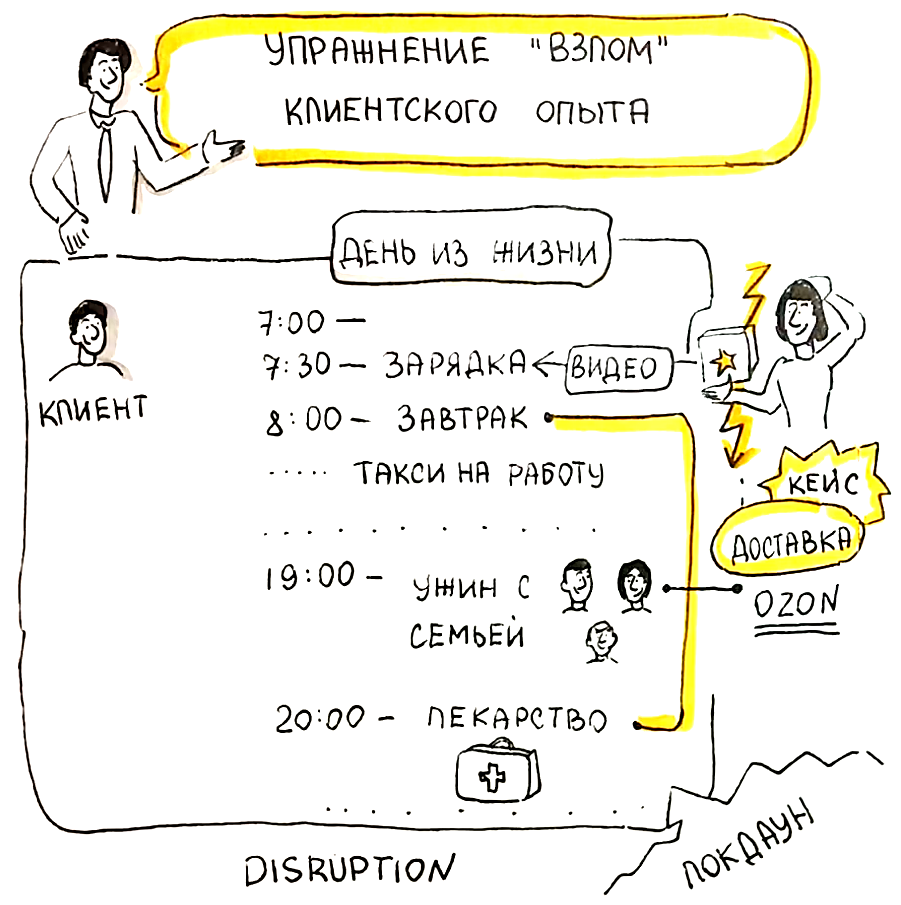 УПРАЖНЕНИЕ "ВЗЛОМ"
КЛИЕНТСКОГО ОПЫТА
ДЕНЬ ИЗ ЖИЗНИ
7:00 —
7:30 — ЗАРЯДКА ВИДЕО
КЛИЕНТ
8:00 — ЗАВТРАК
..... ТАКСИ НА РАБОТУ
КЕЙС
ДОСТАВКА
OZON
19:00 — УЖИН С
СЕМЬЕЙ
20:00 — ЛЕКАРСТВО
ЛОКДАУН
DISRUPTION